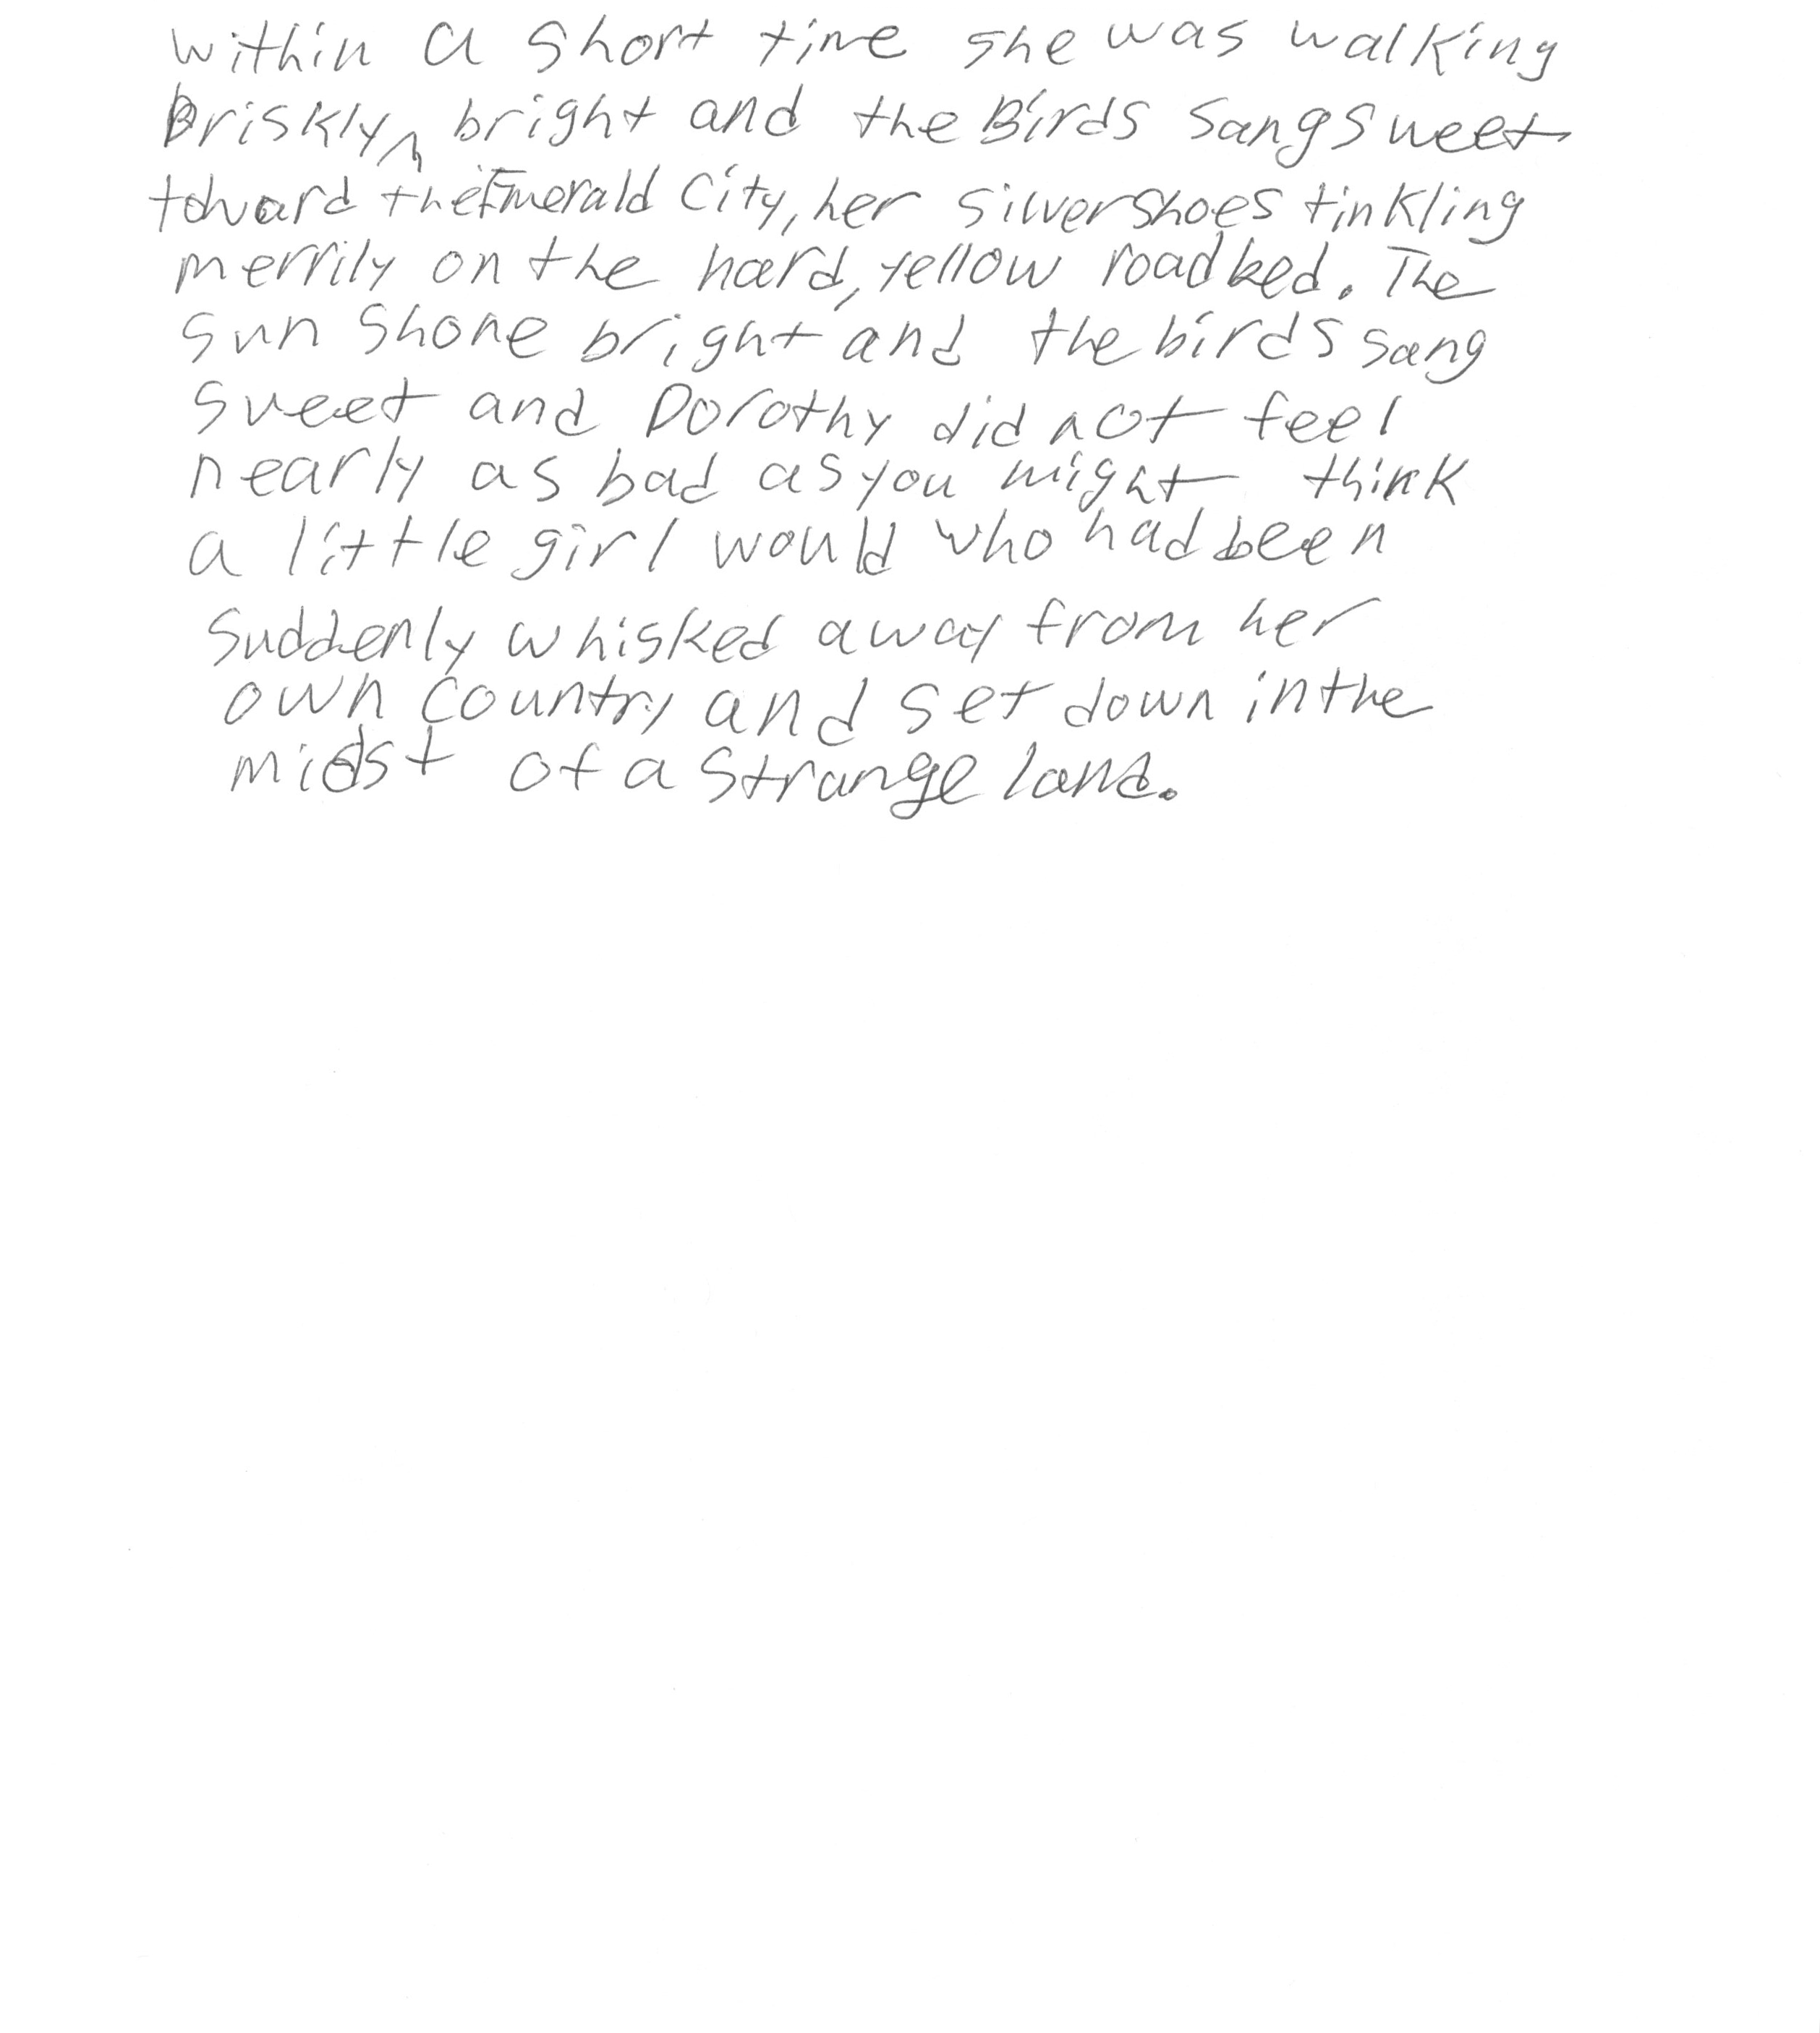 within a short time she was walking
briskly, bright and the Birds sang sweet
toward the Emerald City, her silver shoes tinkling
merrily on the hard, yellow roadbed. The
sun shone bright and the birds sang
sweet and Dorothy did not feel
nearly as bad as you might think
a little girl would who had been
suddenly whisked away from her
own country and set down in the
midst of a strange land.